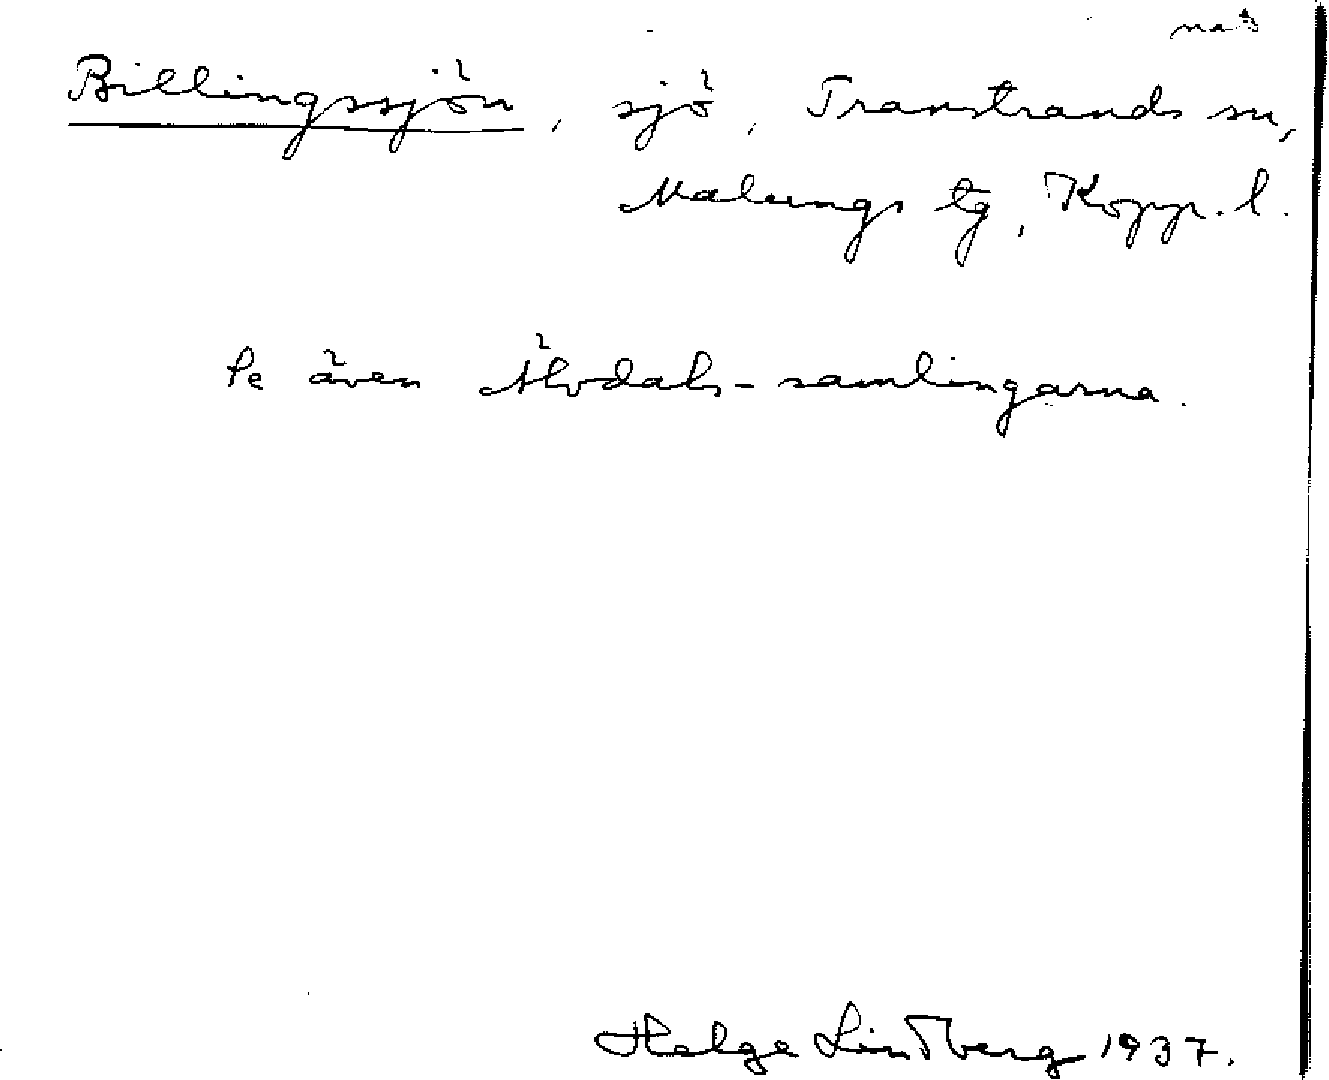 Billingssjön, sjö, Transtrands sn,
Malungs tg, Kopp. l.
Se även Älvdals-samlingarna.
Helge Lindberg 1937.